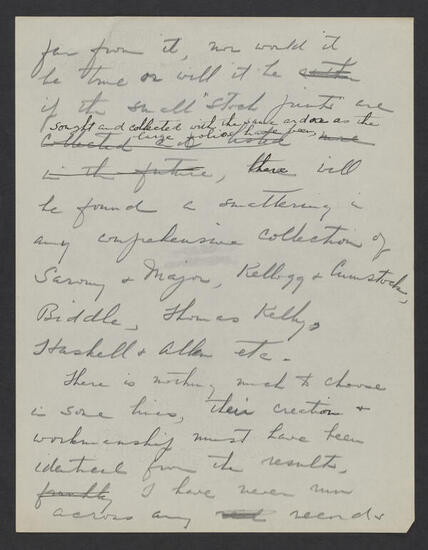 far from it, nor would it
be true or will it be
if the small "stock prints" are
sought and collected with the same ardor as the
large folios have been,
Collected & noted more
in the future, there will
be found a smattering in
any comprehensive collection of
Sarony & Major, Kellogg & Cumstock,
Biddle, Thomas Kelly,
Haskell & Allen etc.
There is nothing much to choose
in some lines, their creation &
workmanship must have been
identical from the results,
frankly I have never run
across any records